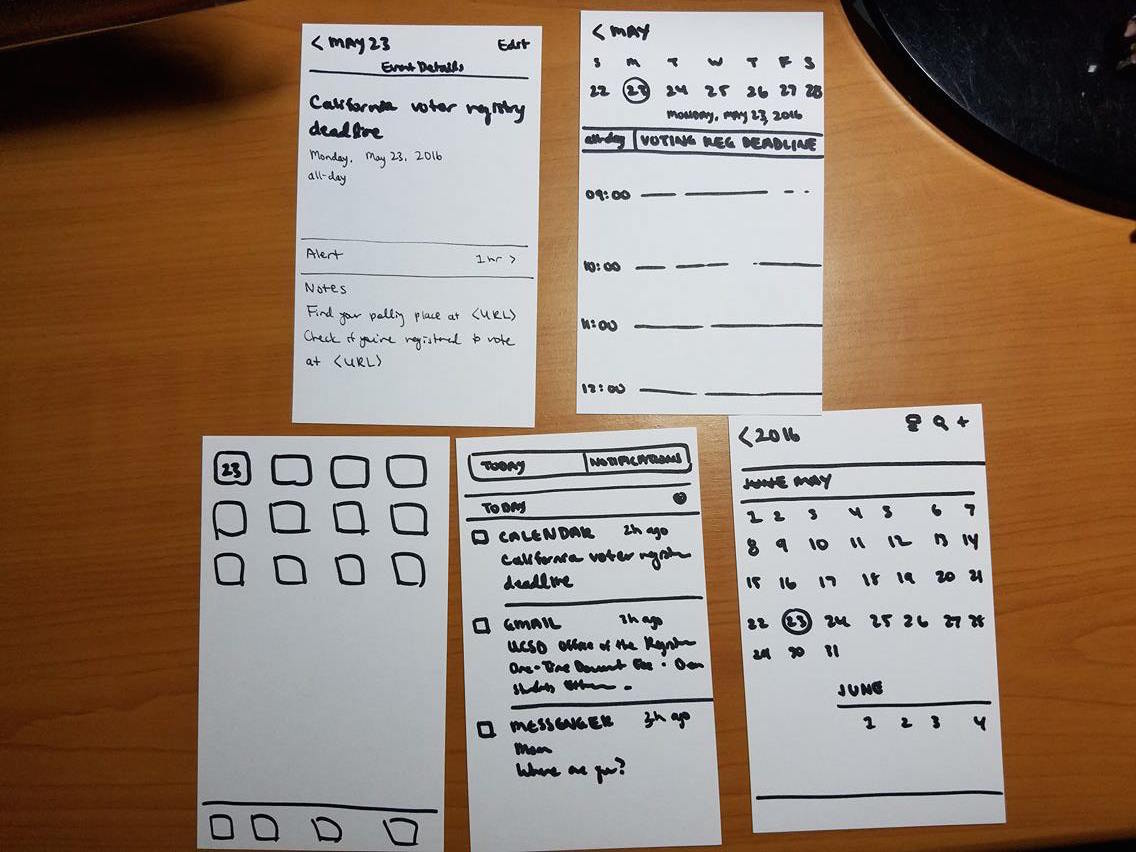 < MAY 23 Edit
Event Details
California voter registry
deadline
Monday, May 23, 2016
all-day
Alert 1 hr >
Notes
Find your polling place at <URL>
Check if you're registered to vote
at <URL>
< MAY
S M T W T F S
22 23 24 25 26 27 28
MONDAY, MAY 23, 2016
all-day VOTING REG DEADLINE
09:00
10:00
11:00
12:00
23
TODAY NOTIFICATIONS
TODAY
CALENDAR 2h ago
California voter
deadline
GMAIL 3h ago
UCSD Office of the
One-Time Document Fee -
MESSENGER 3h ago
Mom
Where are you?
< 2016
JUNE MAY
1 2 3 4 5 6 7
8 9 10 11 12 13 14
15 16 17 18 19 20 21
22 23 24 25 26 27 28
29 30 31
JUNE
1 2 3 4